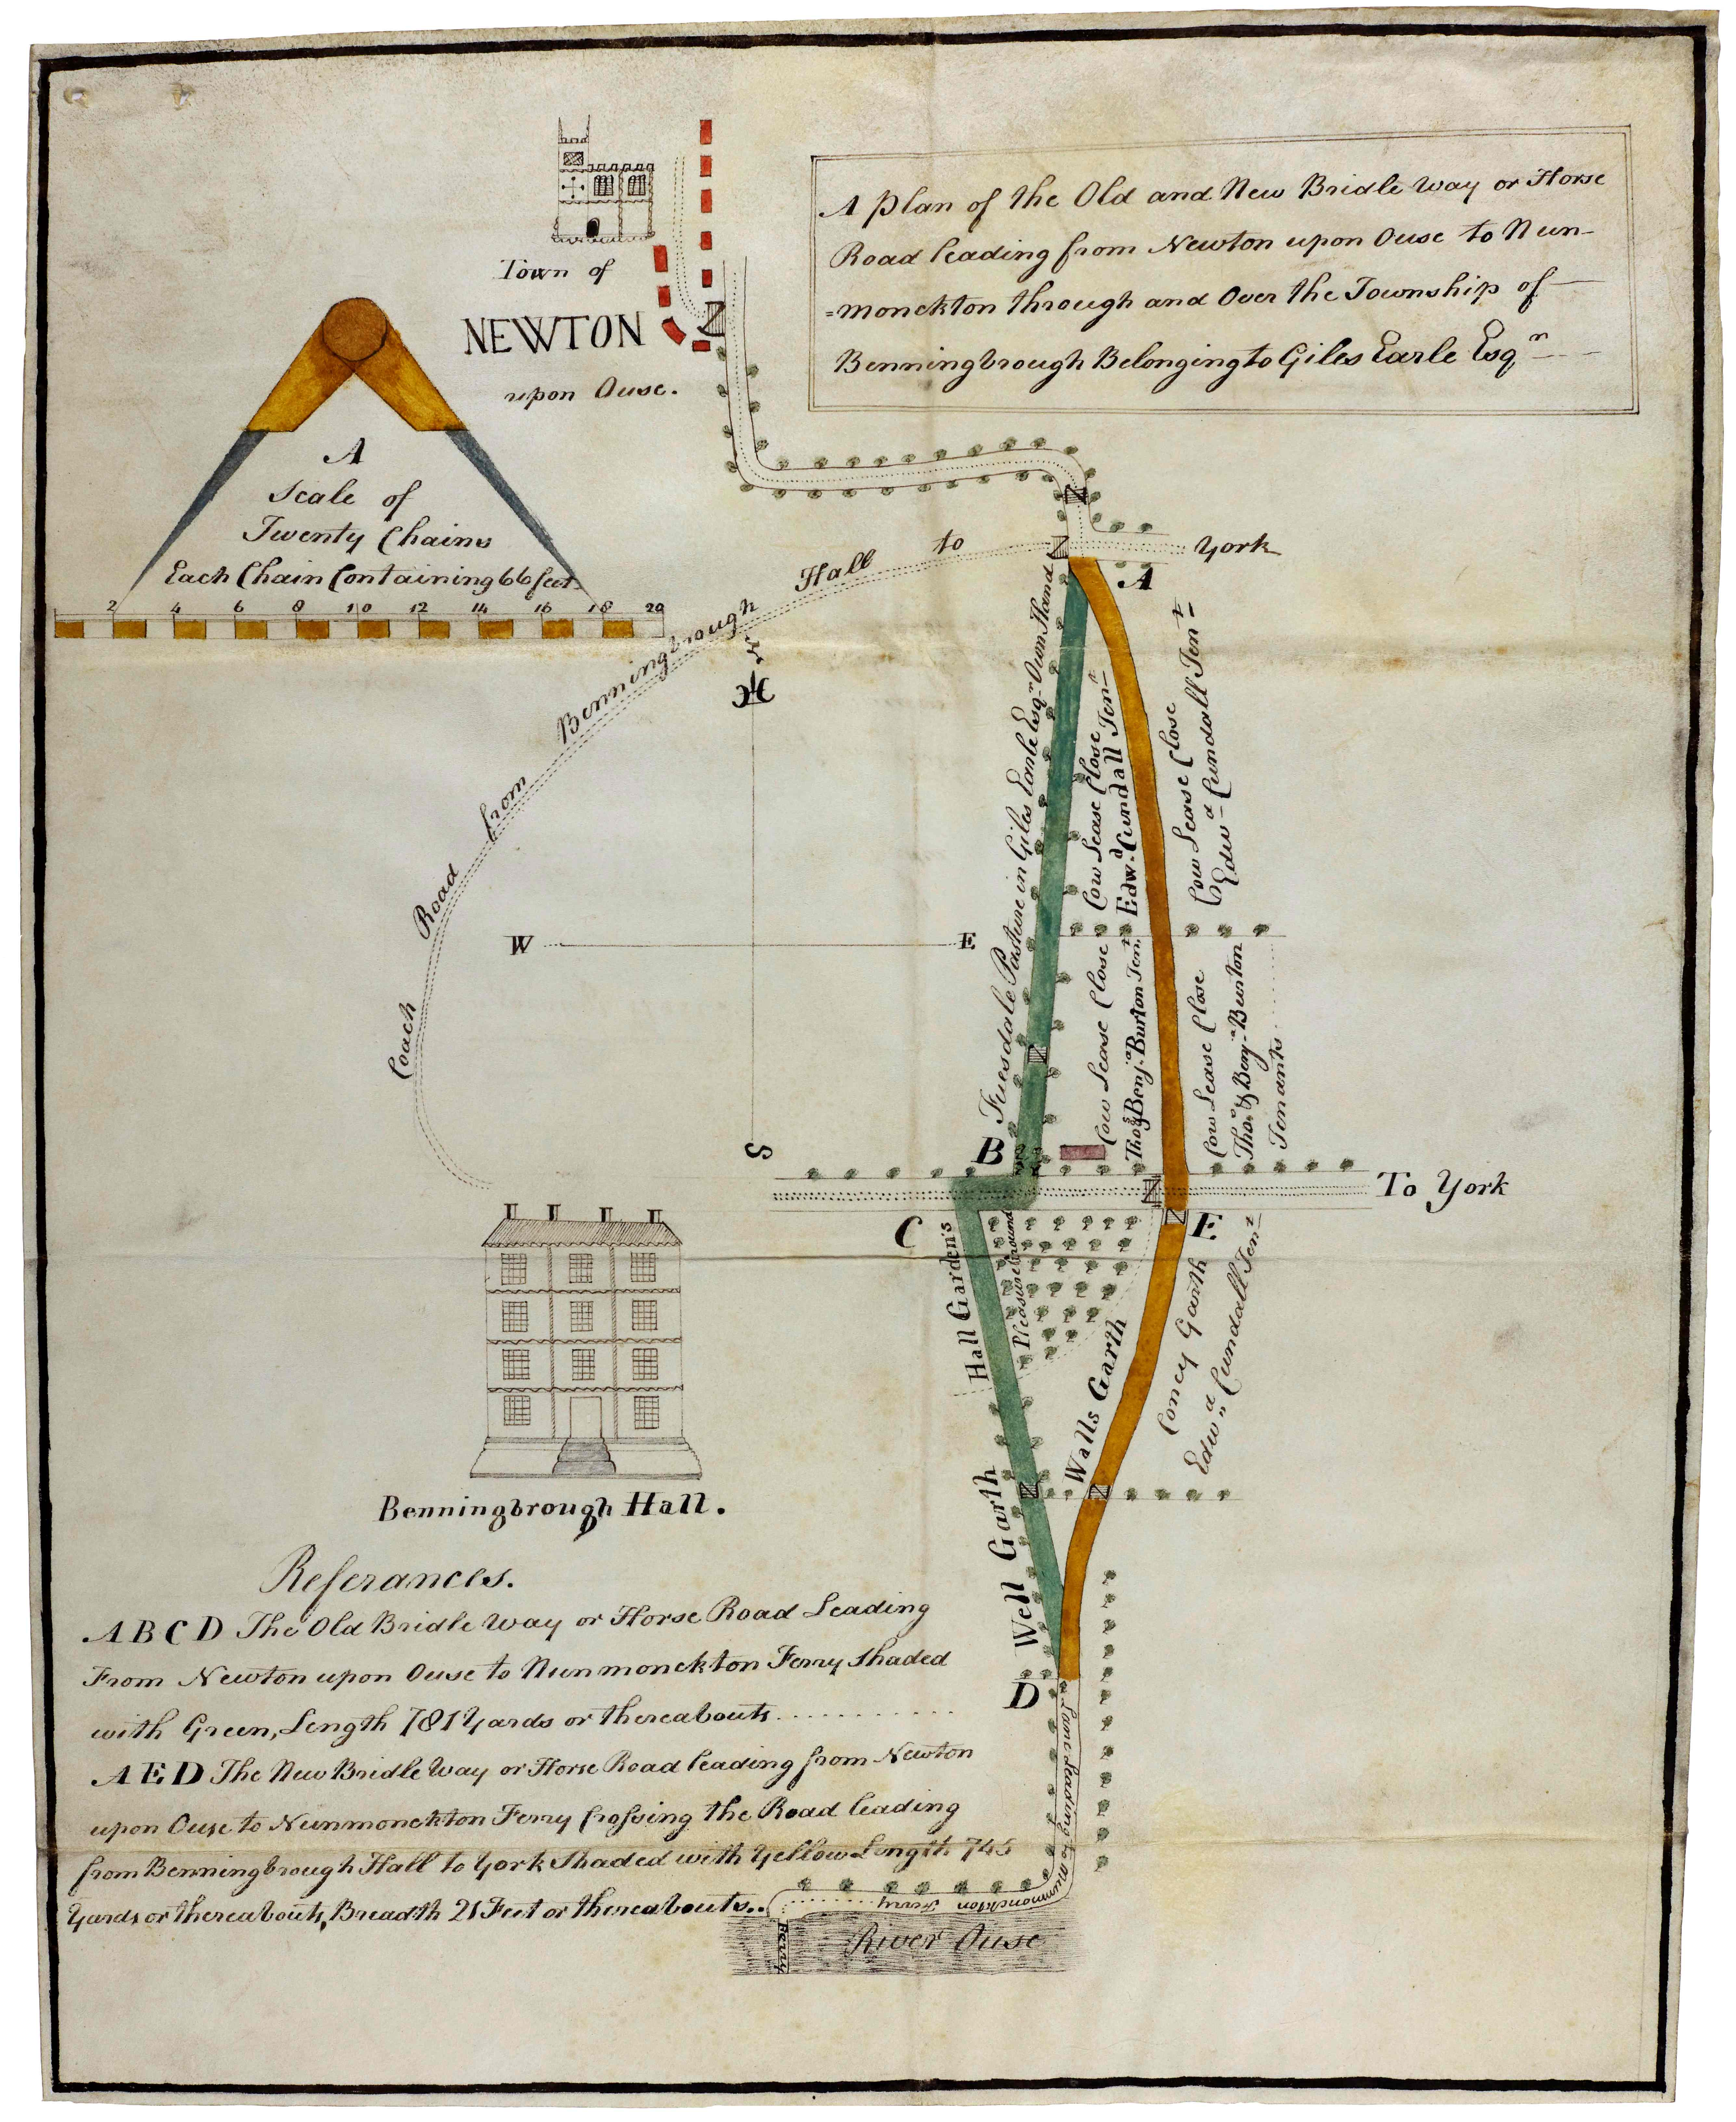 A Plan of the Old and New Bridle Way or Horse
Road leading from Newton upon Ouse to Nun-
=monckton through and Over the Township of
Benningbrough Belonging to Giles Earle Esqr
Town of
NEWTON
upon Ouse.
A
Scale of
Twenty Chains
Each Chain Containing 66 feet
2 4 6 8 10 12 14 16 18 20
Coach Road from Benningbrough Hall to York
A
W
E
S
Pasture in Giles Earle Esqr. Own Hand
Cow Lease Close
Edwd. Cundall Tent
Cow Lease Close
Edwd Cundall Tent
Cow Lease Close
Thos & Benjn Burton Tent
Cow Lease Close
Thos. & Benjn Burton
Tenants
B
To York
C
E
Hall Garden's
Pleasure Ground
Walls Garth
Coney Garth
Edwd. Cundall Tent
Well Garth
D
Lane Leading to Nunmonckton Ferry
Ferry
River Ouse
Benningbrough Hall.
Referances.
A B C D The Old Bridle Way or Horse Road Leading
From Newton upon Ouse to Nunmonckton Ferry Shaded
with Green, Length 781 Yards or thereabouts
A E D The New Bridle Way or Horse Road leading from Newton
upon Ouse to Nunmonckton Ferry Crossing the Road leading
from Benningbrough Hall to York Shaded with Yellow Length 745
Yards or thereabouts, Breadth 21 Feet or thereabouts..